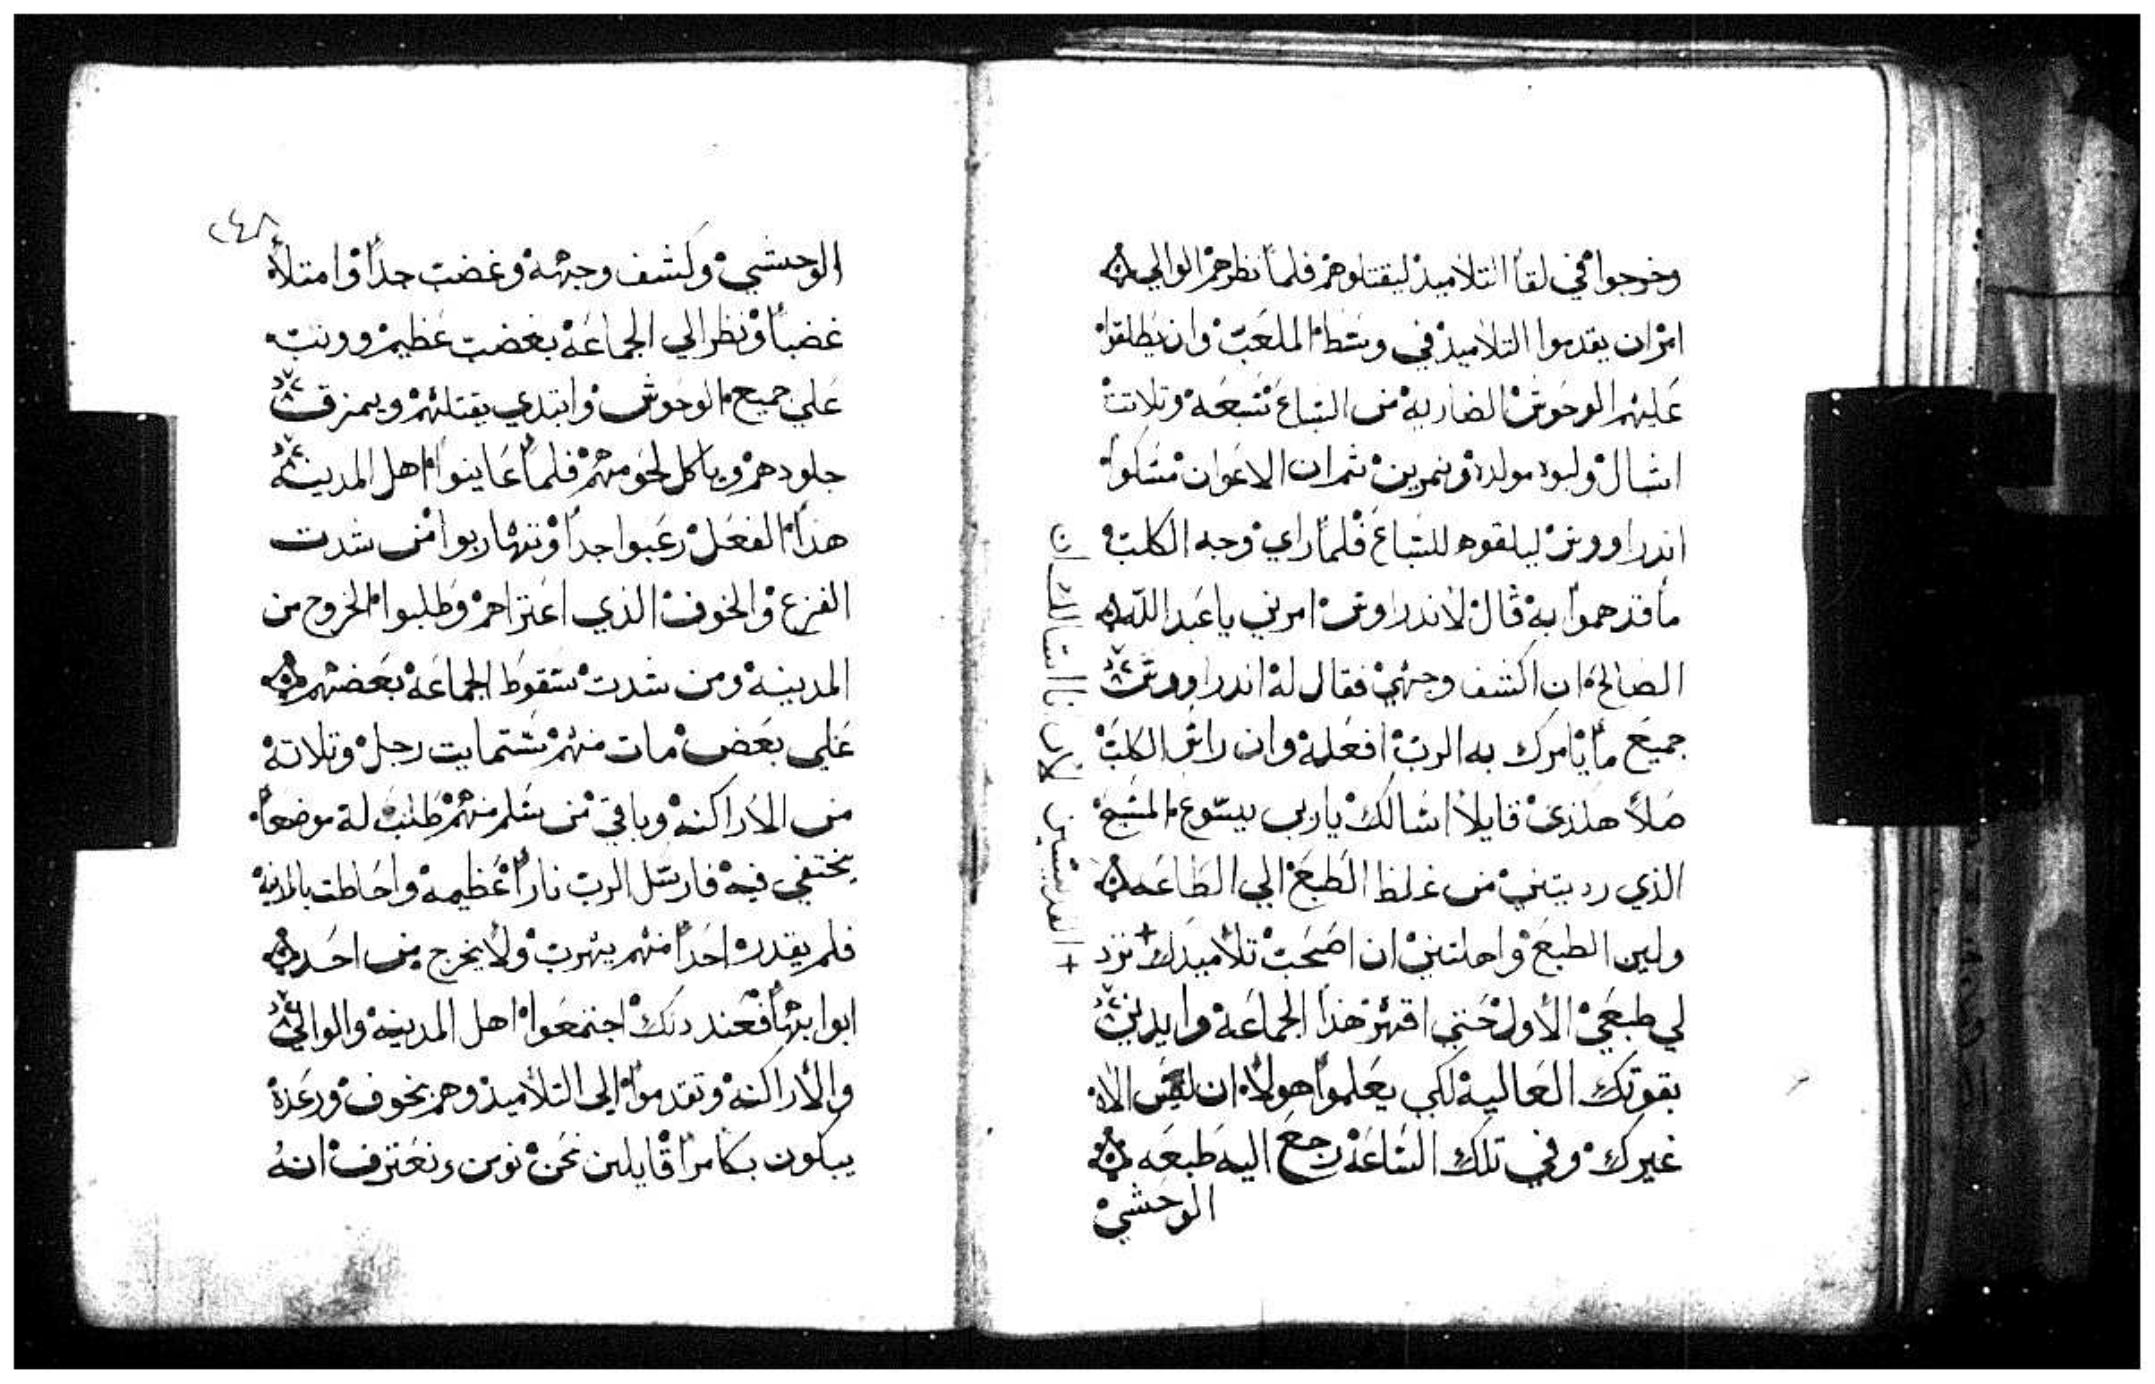 وخرجوا في لقا التلاميذ ليقتلوهم فلما نظرهم الوالي
امر ان يقدموا التلاميذ في وسط الملعب وان يطلقوا
عليهم الوحوش الضاريه من السباع سبعه وتلاتت
اشبال ولبوه مولده ونمرين ثم ان الاعوان مسكوا
اندراووس ليلقوه للسباع فلما راي وجه الكلب
ما قد هموا به قال لاندراوس امرني يا عبد الله
الصالح ان اكشف وجهي فقال له اندراووس
جميع ما يامرك به الرب افعله وان راس الكلب
صلا هكذي قايلا اسالك يا ربي يسوع المسيح
الذي رديتني من غلظ الطبع الي الطاعه
ولين الطبع واحلتني ان اصحب تلاميدك + ترد
لي طبعي الاول حتي اقهر هذا الجماعة وايدني
بقوتك العالية لكي يعلموا هولاء ان ليس الاه
غيرك وفي تلك الساعة رجع اليه طبعه
الوحشي
+ القديسين لان انا اسالك ان
٢٤٨
الوحشي وكشف وجهه وغضب جدا وامتلأ
غضبا ونظر الي الجماعة بغضب عظيم ووتب
علي جميع الوحوش وابتدي يقتلهم ويمزق
جلودهم وياكل لحومهم فلما عاينوا اهل المدينة
هذا الفعل رعبوا جدا وتهاربوا من شدت
الفزع والخوف الذي اعتراهم وطلبوا الخروج من
المدينة ومن شدت سقوط الجماعة بعضهم
علي بعض مات منهم ستمايت رجل وتلاتة
من الاراكنه وباقي من سلم منهم طلب له موضعا
يختفي فيه فارسل الرب نارا عظيمة واحاطت بالمدينة
فلم يقدر احدا منهم يهرب ولا يخرج من احد
ابوابها فعند دلك اجتمعوا اهل المدينة والوالي
والاراكنة وتقدموا الي التلاميذ وهم بخوف ورعدة
يبكون بكا مرا قايلين نحن نومن ونعترف انه